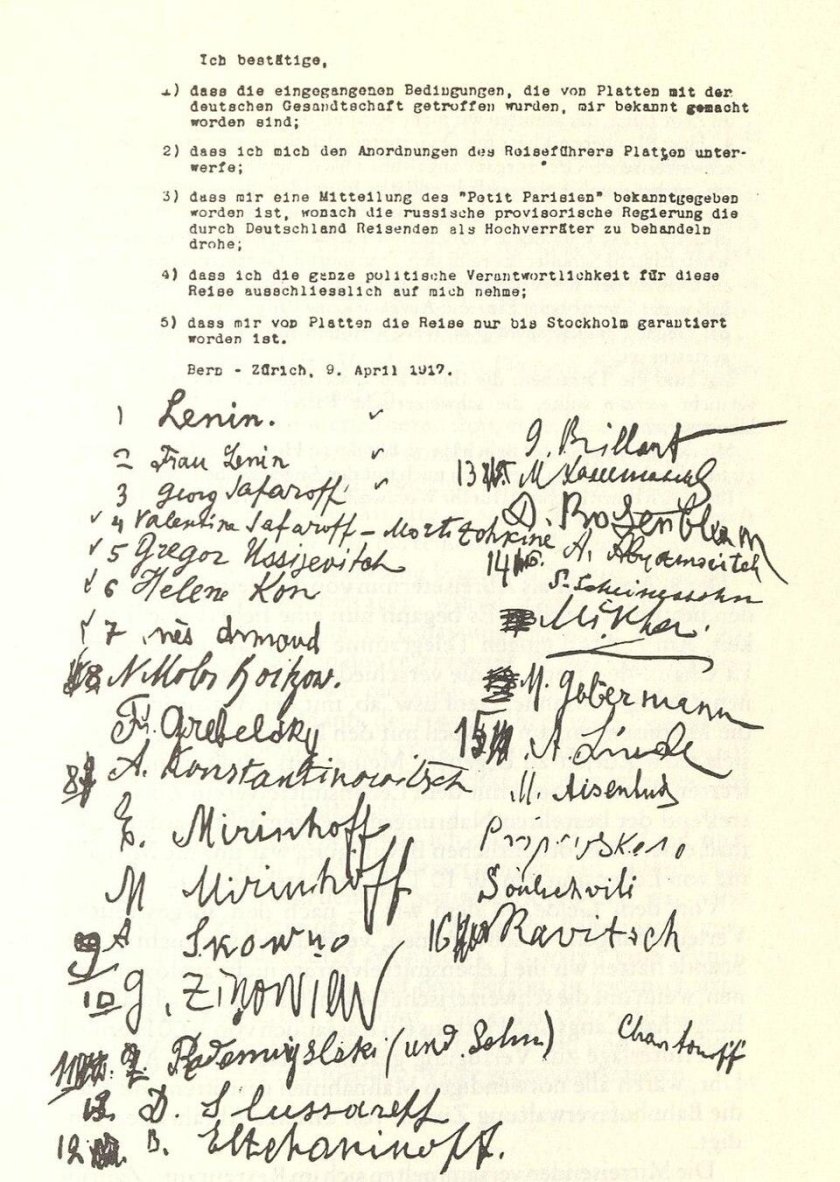 Ich bestätige,
1) dass die eingegangenen Bedingungen, die von Platten mit der
deutschen Gesandtschaft getroffen wurden, mir bekannt gemacht
worden sind;
2) dass ich mich den Anordnungen des Reiseführers Platten unter-
werfe;
3) dass mir eine Mitteilung des "Petit Parisien" bekanntgegeben
worden ist, wonach die russische provisorische Regierung die
durch Deutschland Reisenden als Hochverräter zu behandeln
drohe;
4) dass ich die ganze politische Verantwortlichkeit für diese
Reise ausschliesslich auf mich nehme;
5) dass mir von Platten die Reise nur bis Stockholm garantiert
worden ist.
Bern - Zürich, 9. April 1917.
1 Lenin.
2 Frau Lenin
3 Georg Safaroff
4 Valentina Safaroff - Mortotchkine
5 Gregor Ussijevitch
6 Helene Kon
7 Inès Armand
8 N. Boitzow.
F. Grebelsky
A. Konstantinowitsch
E. Mirinhoff
M Mirinhoff
9 A Skowno
10 G. Zinowiew
11 (und Sohn)
D. Slussareff
12 B. Eltchaninoff.
G. Brillant
13 M
D. Rosenblum
14 A.
S. Scheinessohn
M. Gobermann
15 A. Linde
M. Aisenbud
Souliachvili
16 Ravitsch
Charitonoff